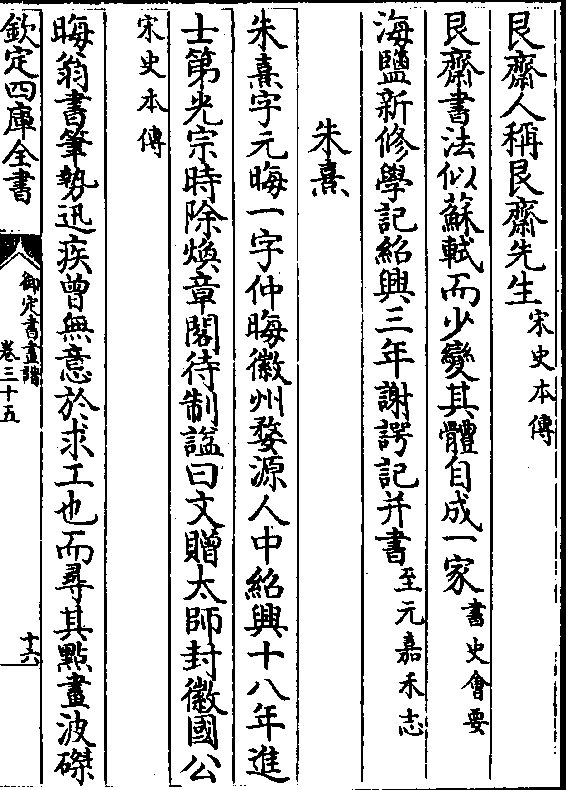 艮齋人稱艮齋先生宋史本傳
艮齋書法似蘇軾而少變其體自成一家書史會要
海鹽新修學記紹興三年謝諤記并書至元嘉禾志
朱熹
朱熹字元晦一字仲晦徽州婺源人中紹興十八年進
士第光宗時除煥章閣待制諡曰文贈太師封徽國公
宋史本傳
晦翁書筆勢迅疾曾無意於求工也而尋其點畫波磔
欽定四庫全書
御定書畫譜
卷三十五
十六